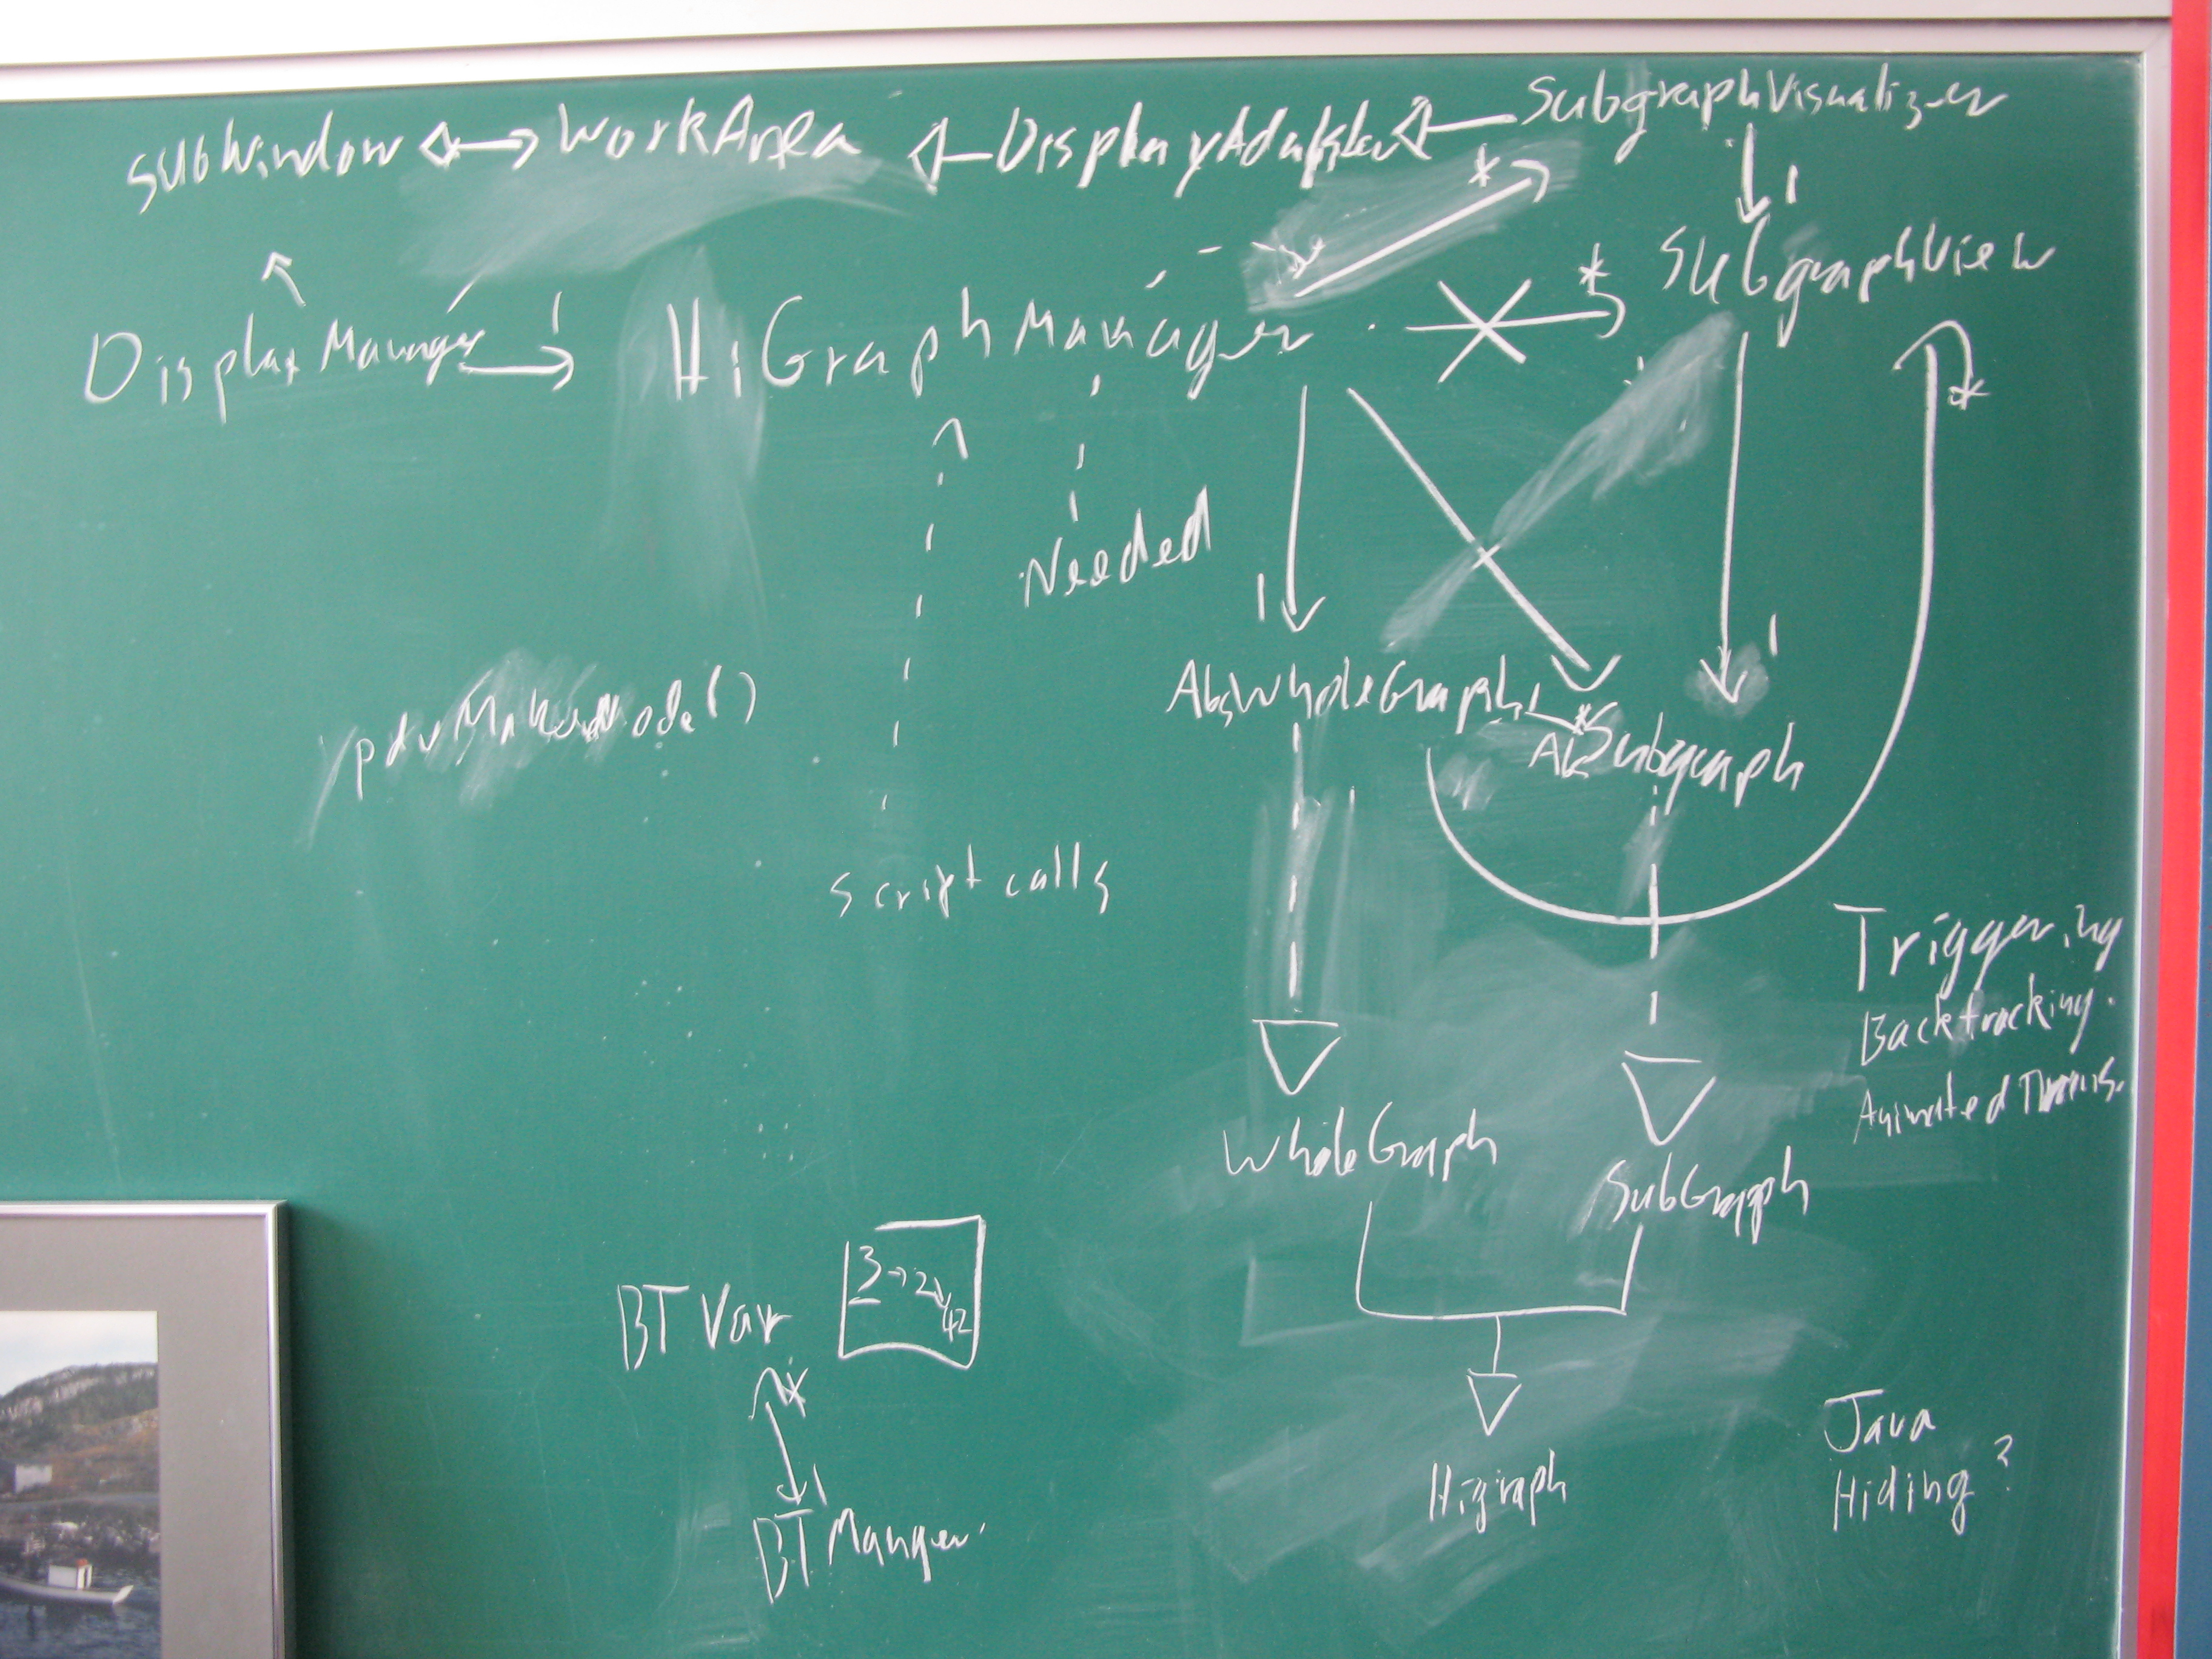 SubWindow WorkArea DisplayAdapter SubgraphVisualizer
* 1
SubgraphView
Display Manager 1 HiGraphManager * *
Needed
1 1
AbsWholeGraph 1 * AbSubgraph
MakeNode()
script calls
Triggering
Backtracking.
Animated Trans.
WholeGraph SubGraph
BT Var 3→2→42
*
1
BT Manger.
Higraph
Java
Hiding?